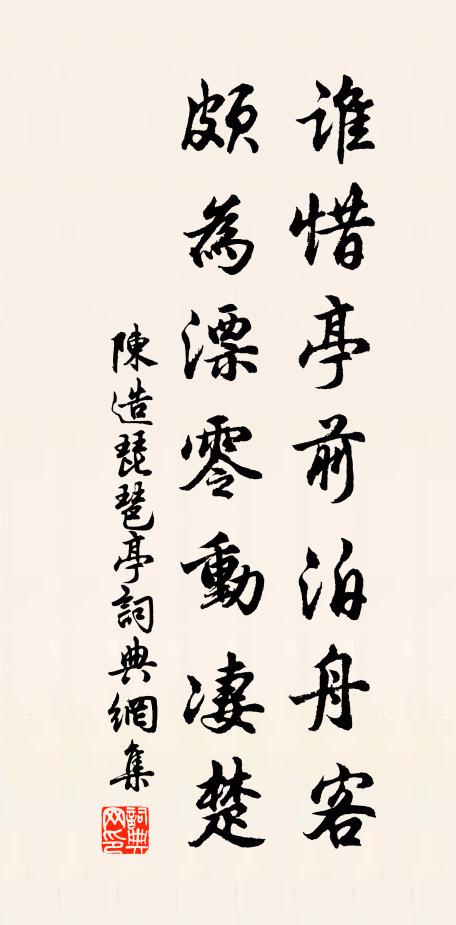 誰惜亭前泊舟客
頗為漂零動淒楚
陳造琵琶亭詞典網集
詞典網印